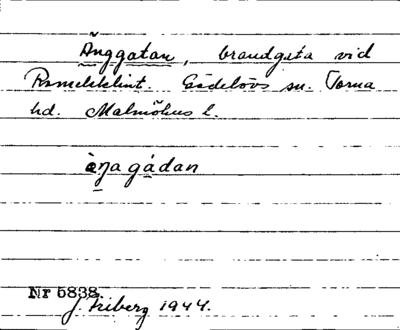 Änggatan, brandgata vid
Romeleklint. Gödelövs sn. Torna
hd. Malmöhus l.
èŋa gádan
Nr 5838.
J. Friberg 1944.